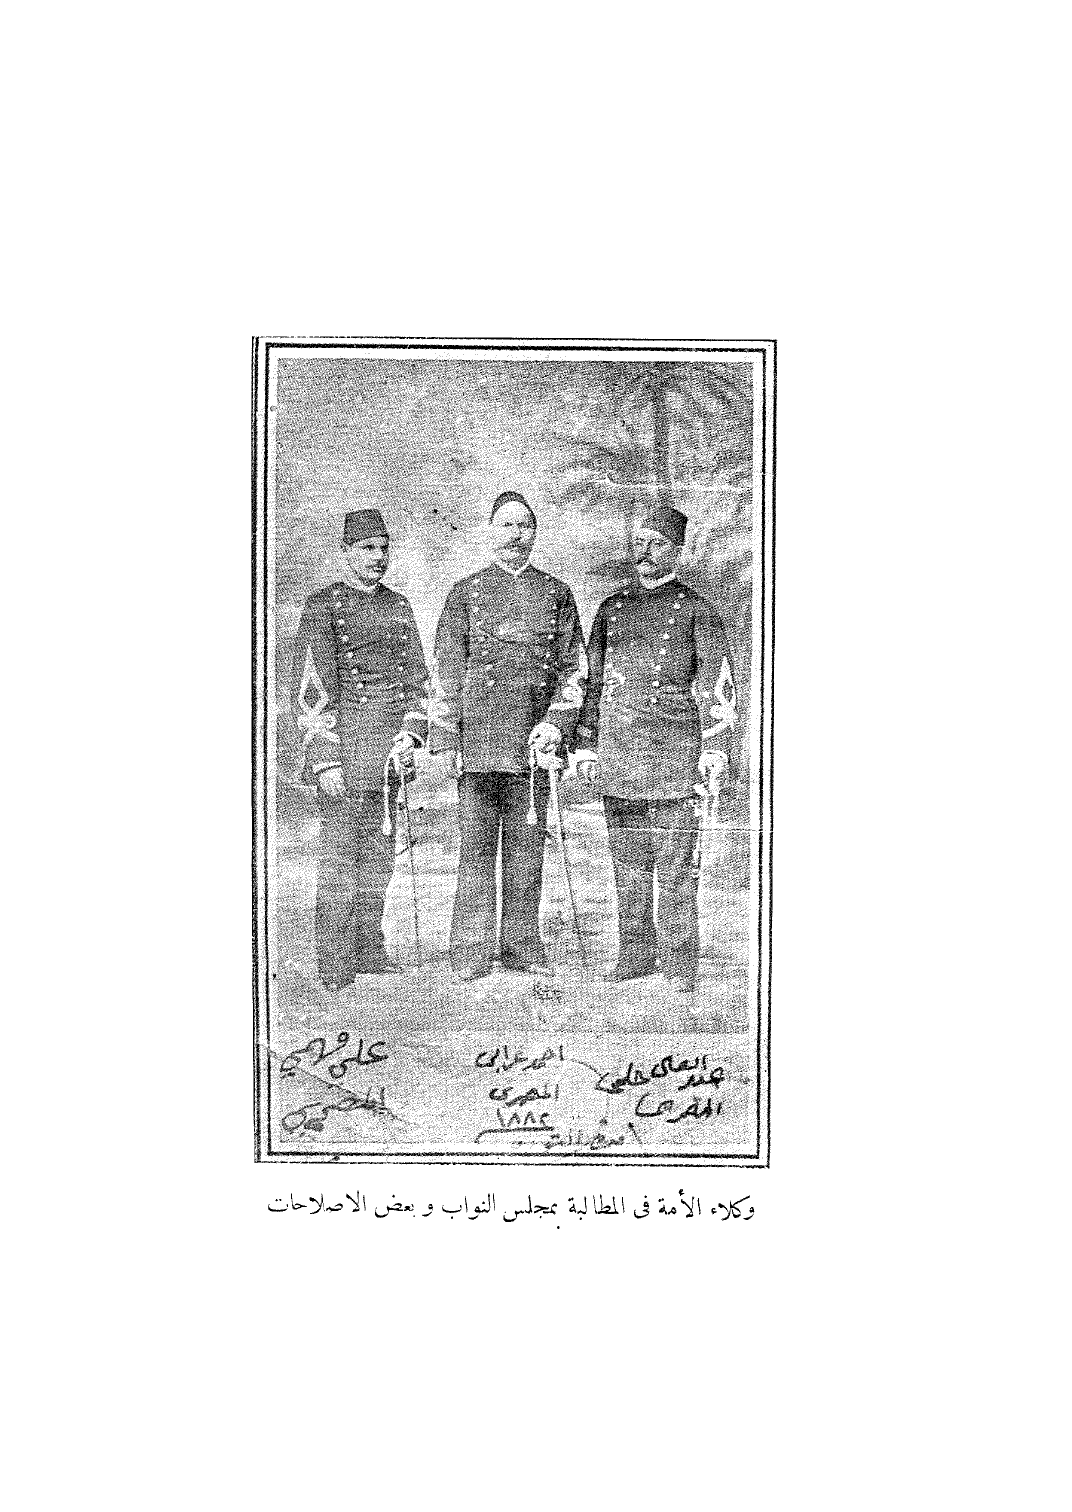 عبد العال حلمى
المصرى
احمد عرابى
المصرى
١٨٨٢
على فهمي
المصري
وكلاء الأمة فى المطالبة بمجلس النواب و بعض الاصلاحات